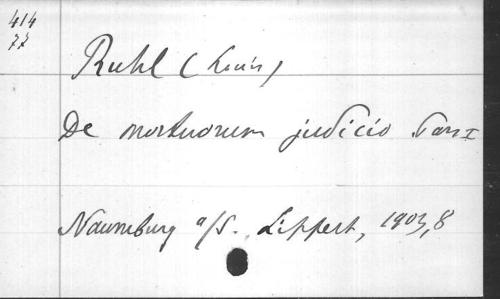 414
77
Ruhl (Louis)
De mortuorum judicio. Pars I
Naumburg a/S., Lippert, 1903, 8